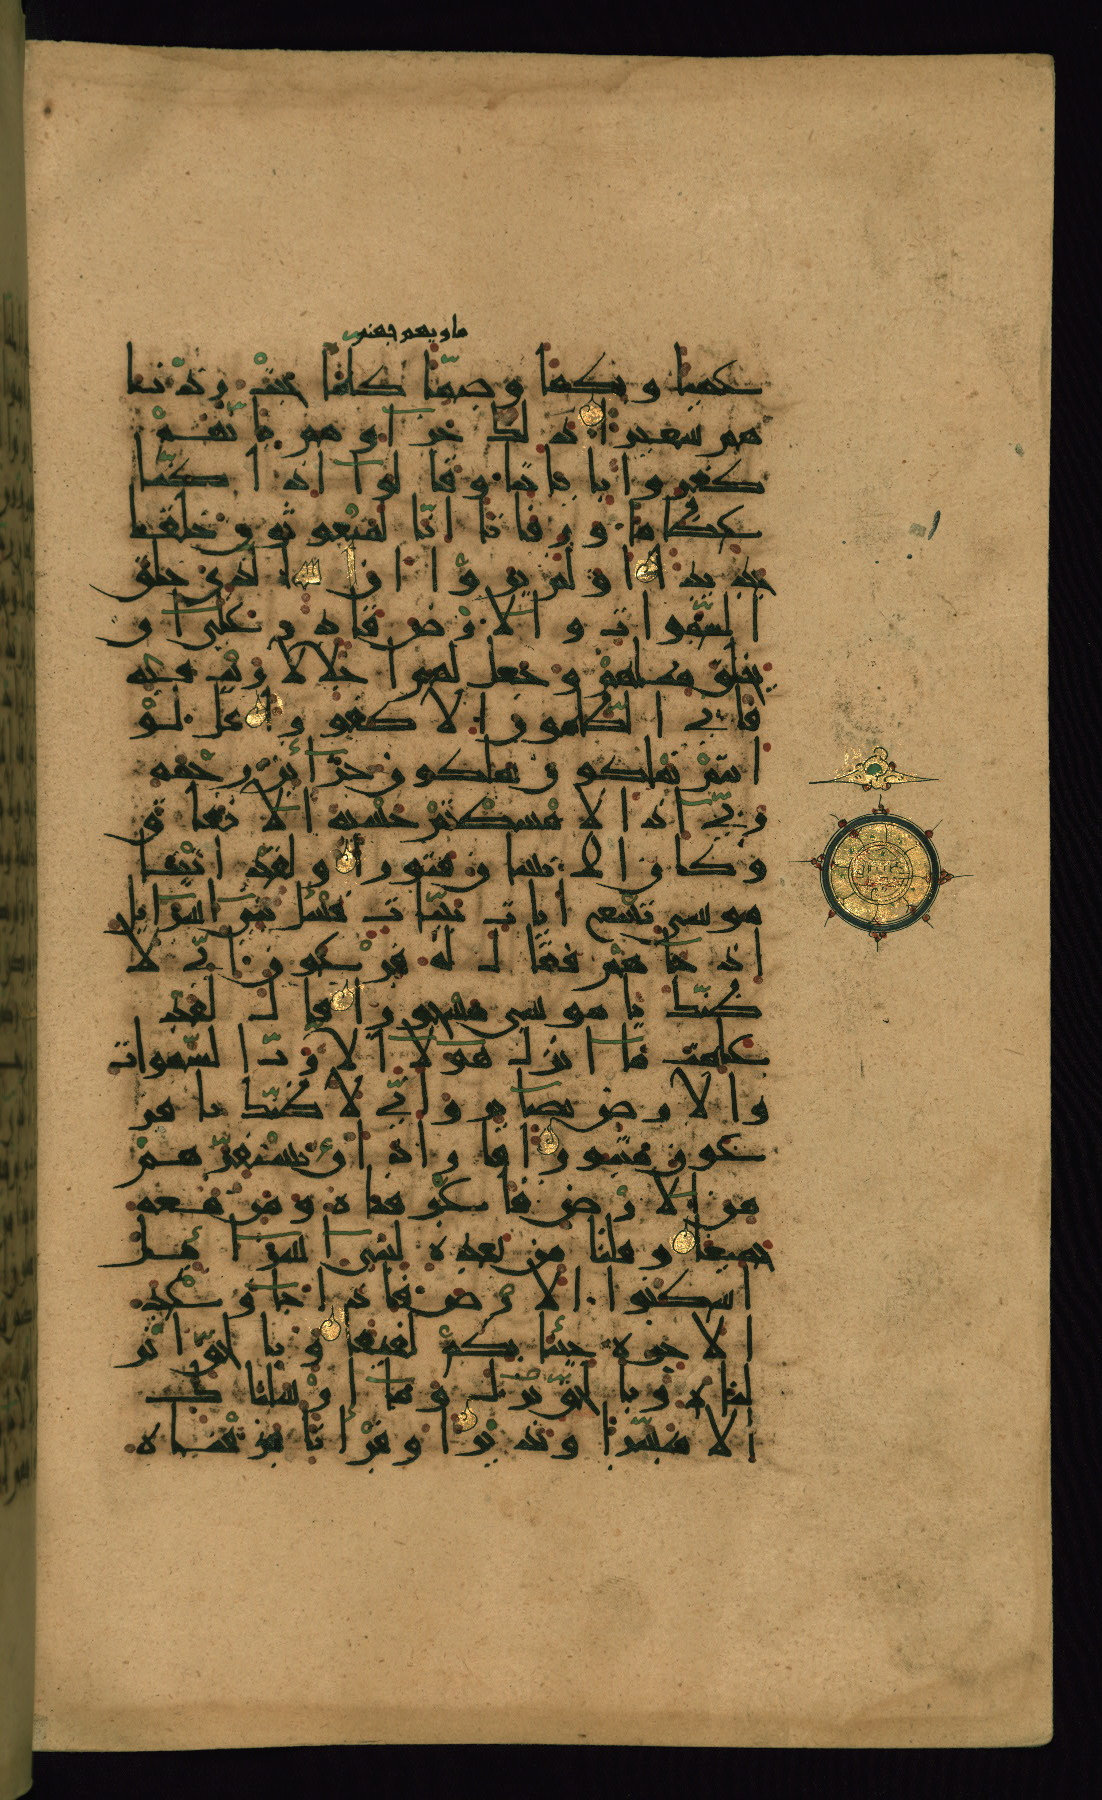 ماويهم جهنم
عميا وبكما وصما كلما خبت زدنا
هم سعيرا ذلك جزاوهم بانهم
كفروا باياتنا وقالوا اذا كنا
عظاما ورفاتا انا لمبعوثون خلقا
جديدا اولم يروا ان الله الذي خلق
السموات والارض قادر على ان
يخلق مثلهم وجعل لهم اجلا لا ريب فيه
فابى الظالمون الا كفورا قل لو
انتم تملكون خزائن رحمة
ربي اذا لامسكتم خشية الانفاق
وكان الانسان قتورا ولقد اتينا
موسى تسع ايات بينات فسئل بني اسرائل
اذ جاهم فقال له فرعون اني لا
ظنك يا موسى مسحورا قال لقد
علمت ما انزل هولا الا رب السموات
والارض بصاير واني لاظنك يا فر
عون مثبورا فاراد ان يستفزهم
من الارض فاغرقناه ومن معه
جميعا وقلنا من بعده لبني اسرائل
اسكنوا الارض فاذا جا وعد
الاخرة جئنا بكم لفيفا وبالحق انز
لناه وبالحق نزل وما ارسلناك
الا مبشرا ونذيرا وقرانا فرقناه